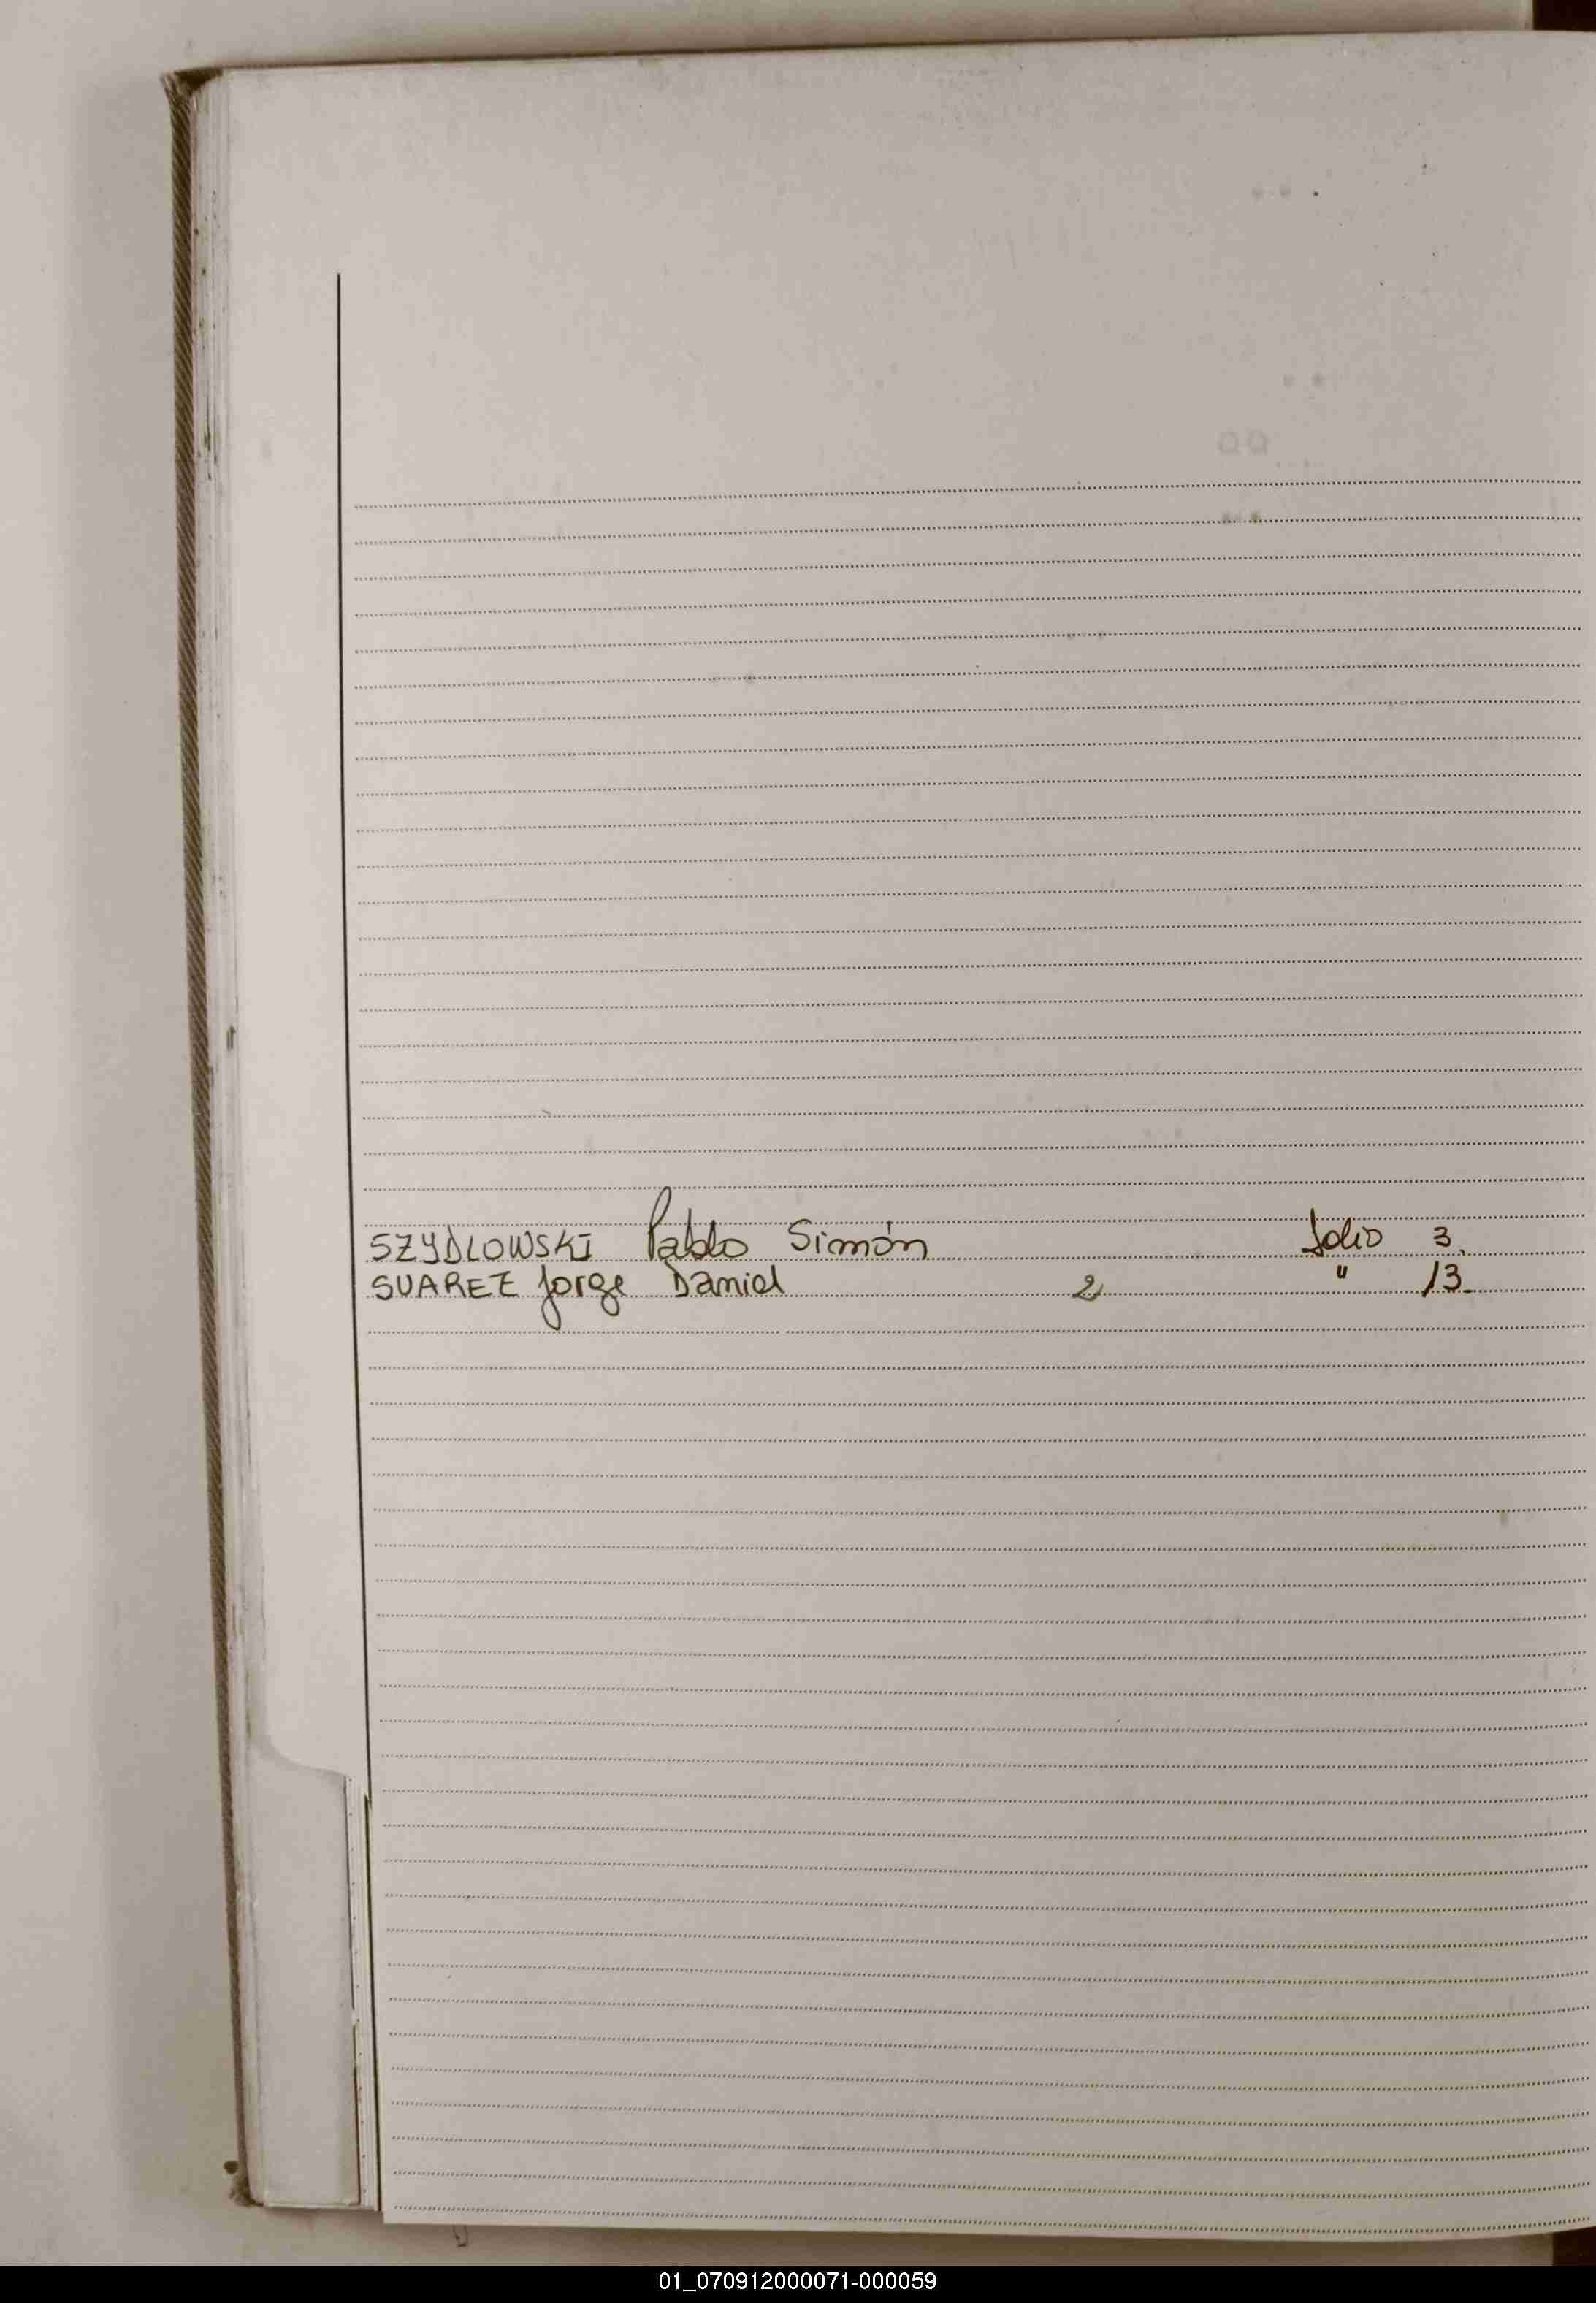 SZYDLOWSKI Pablo Simón folio 3.
SUAREZ Jorge Daniel 2 " 13.
01_070912000071-000059